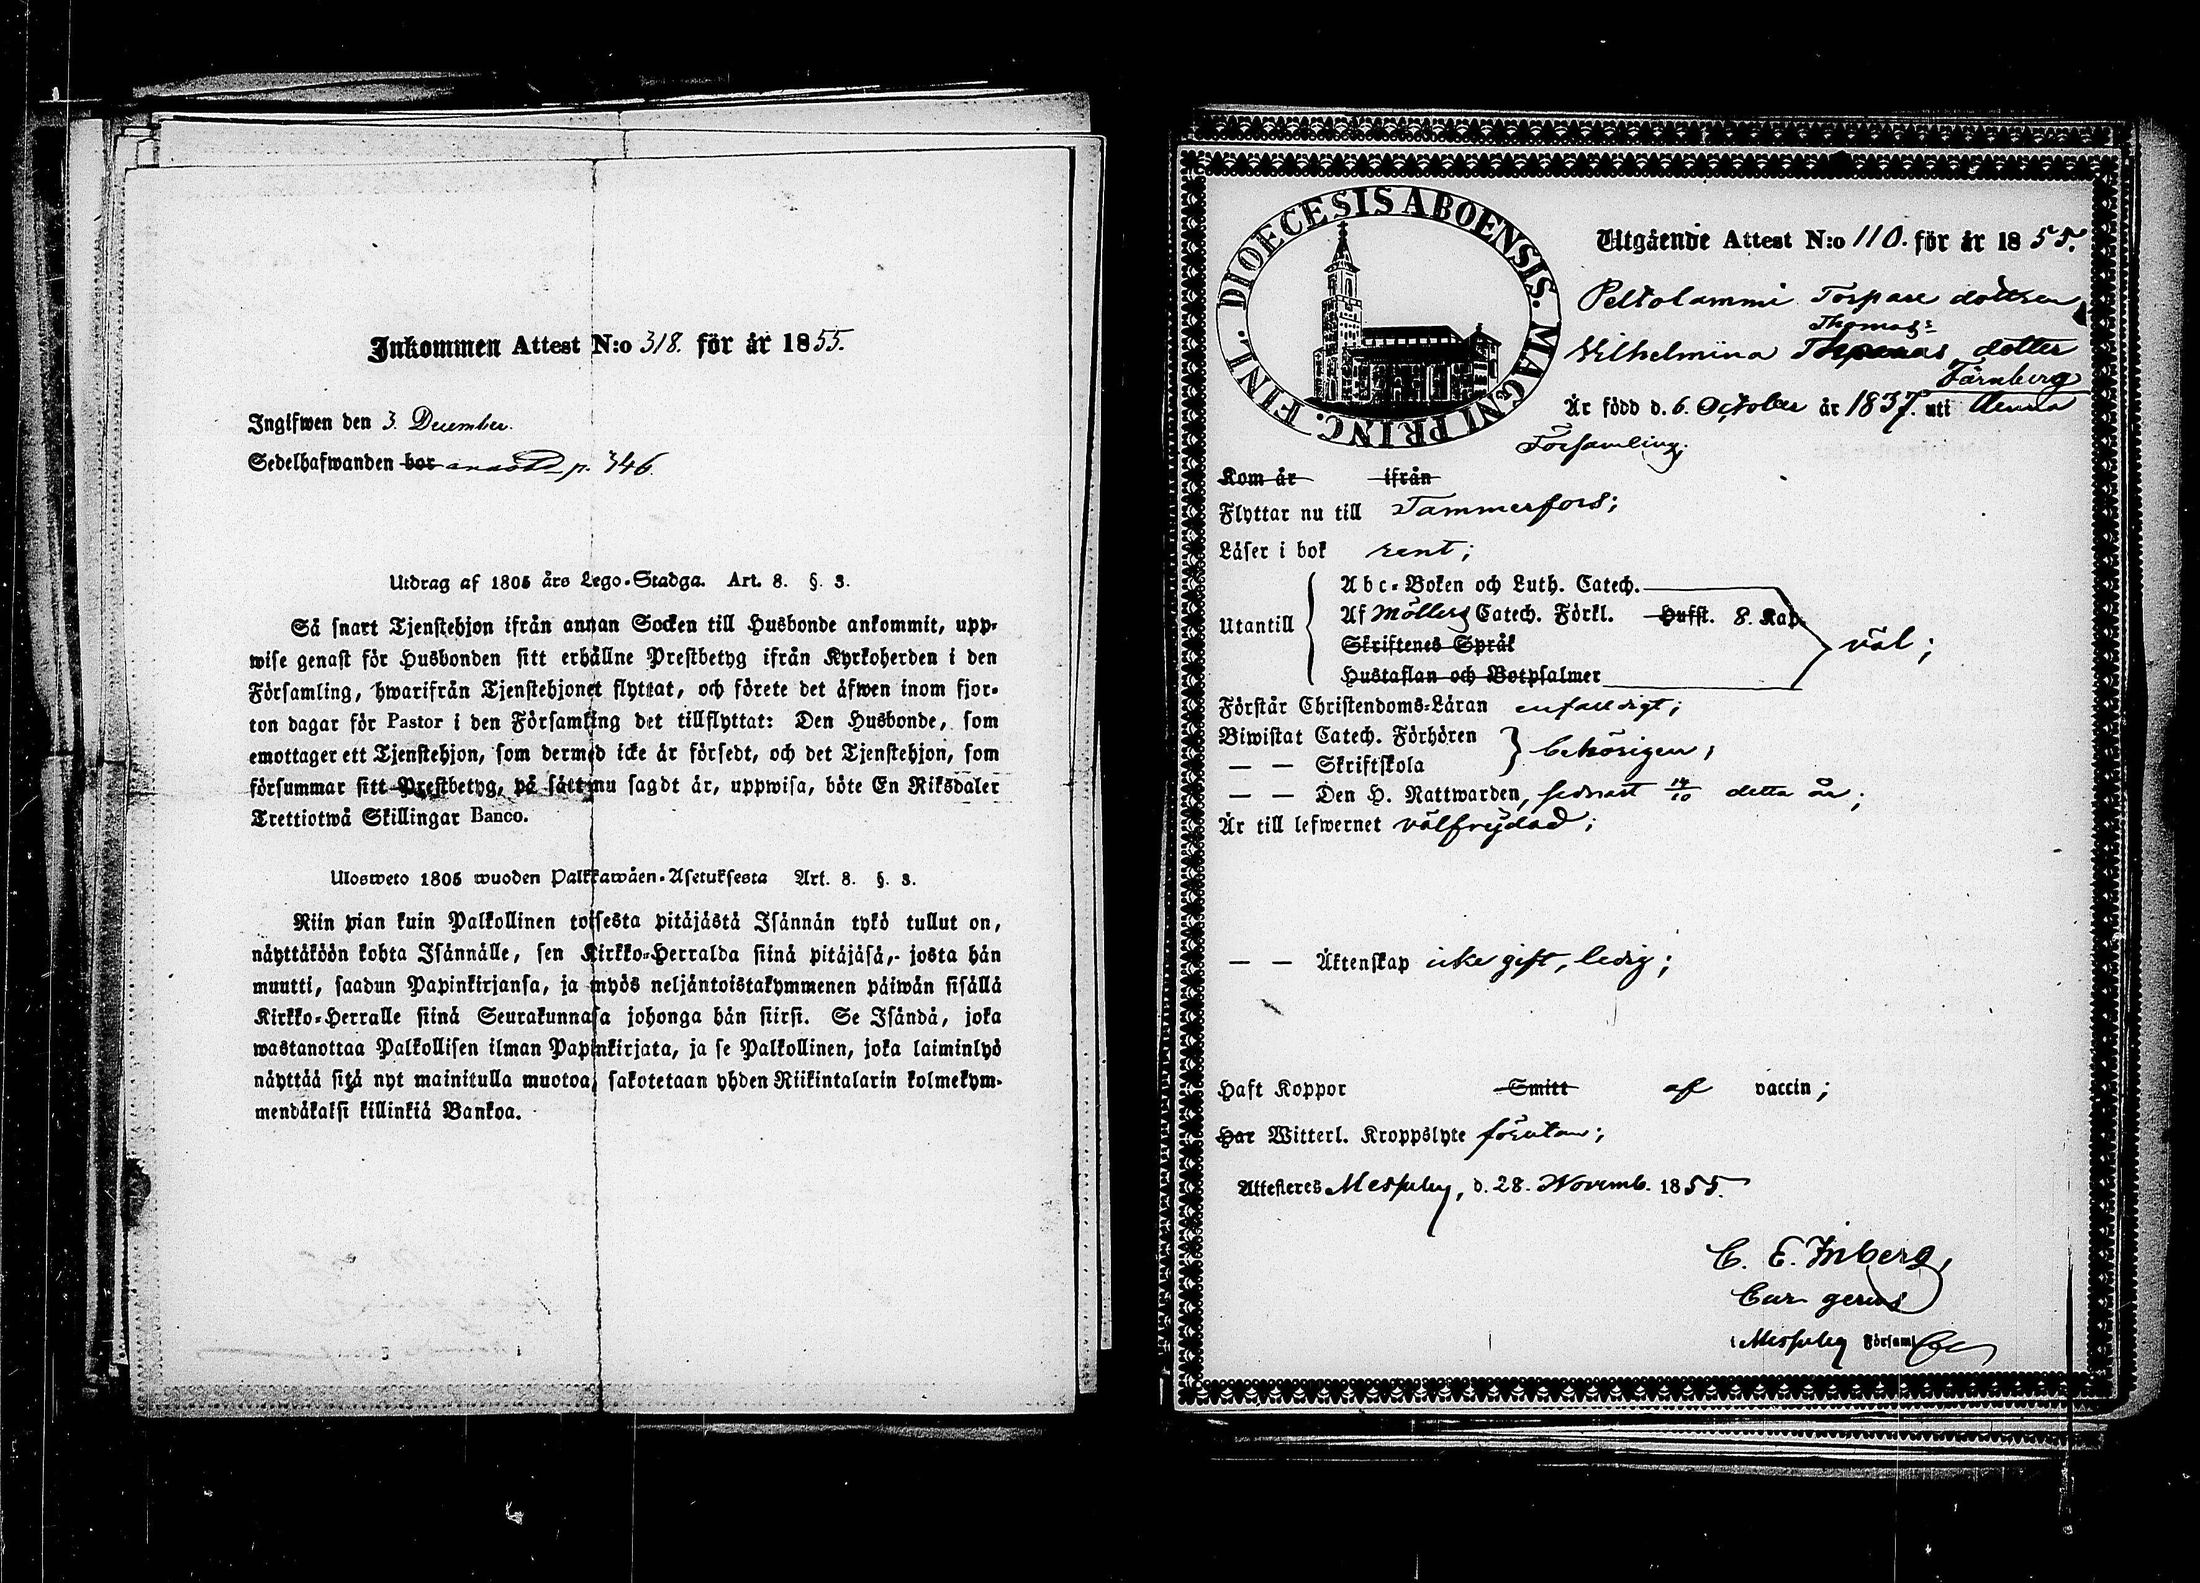 Inkommen Attest N:o 318. för år 1855.
Ingifwen den 3. December.
Sedelhafwanden bor p. 346.
Utdrag af 1805 års Lego-Stadga. Art. 8. §. 3.
Så snart Tjenstehjon ifrån annan Socken till Husbonde ankommit, upp-
wise genast för Husbonden sitt erhållne Prestbetyg ifrån Kyrkoherden i den
Församling, hwarifrån Tjenstehjonet flyttat, och förete det äfwen inom fjor-
ton dagar för Pastor i den Församling det tillflyttat: Den Husbonde, som
emottager ett Tjenstehjon, som dermed icke är försedt, och det Tjenstehjon, som
försummar sitt Prestbetyg, på sätt nu sagdt är, uppwisa, böte En Riksdaler
Trettiotwå Skillingar Banco.
Ulosweto 1805 wuoden Palkkawäen-Asetuksesta Art. 8. §. 3.
Niin pian kuin Palkollinen toisesta pitäjästä Isännän tykö tullut on,
näyttäköön kohta Isännälle, sen Kirkko-Herralda siinä pitäjäsä, josta hän
muutti, saadun Papinkirjansa, ja myös neljäntoistakymmenen päiwän sisällä
Kirkko-Herralle siinä Seurakunnasa johonga hän siirsi. Se Isändä, joka
wastanottaa Palkollisen ilman Papinkirjata, ja se Palkollinen, joka laiminlyö
näyttää sitä nyt mainitulla muotoa, sakotetaan yhden Riikintalarin kolmekym-
mendäkaksi killinkiä Bankoa.
DIOECESIS ABOENSIS. MAGNI PRINC. FINL.
Utgående Attest N:o 110. för år 1855.
Peltolammi Torpare dottren
Thomas=
Wilhelmina dotter
Färnberg
Är född d. 6. October år 1837. uti denna
Församling;
Kom år ifrån
Flyttar nu till Tammerfors;
Läser i bok rent;
Abc-Boken och Luth. Catech.
Utantill Af Möllers Catech. Förkl. Hufst. 8. Kap. väl;
Skriftenes Språk
Hustaflan och Botpsalmer
Förstår Christendoms-Läran enfaldigt;
Biwistat Catech. Förhören behörigen;
— — Skriftskola
— — Den H. Nattwarden, sednast 14/10 detta år;
Är till lefwernet välfrejdad;
— — Äktenskap icke gift, ledig;
Haft Koppor Smitt af vaccin;
Har Witterl. Kroppslyte förutan;
Attesteres Messuby, d. 28. Novemb. 1855.
C. E. Inberg,
Cur gerens
i Messuby Församl